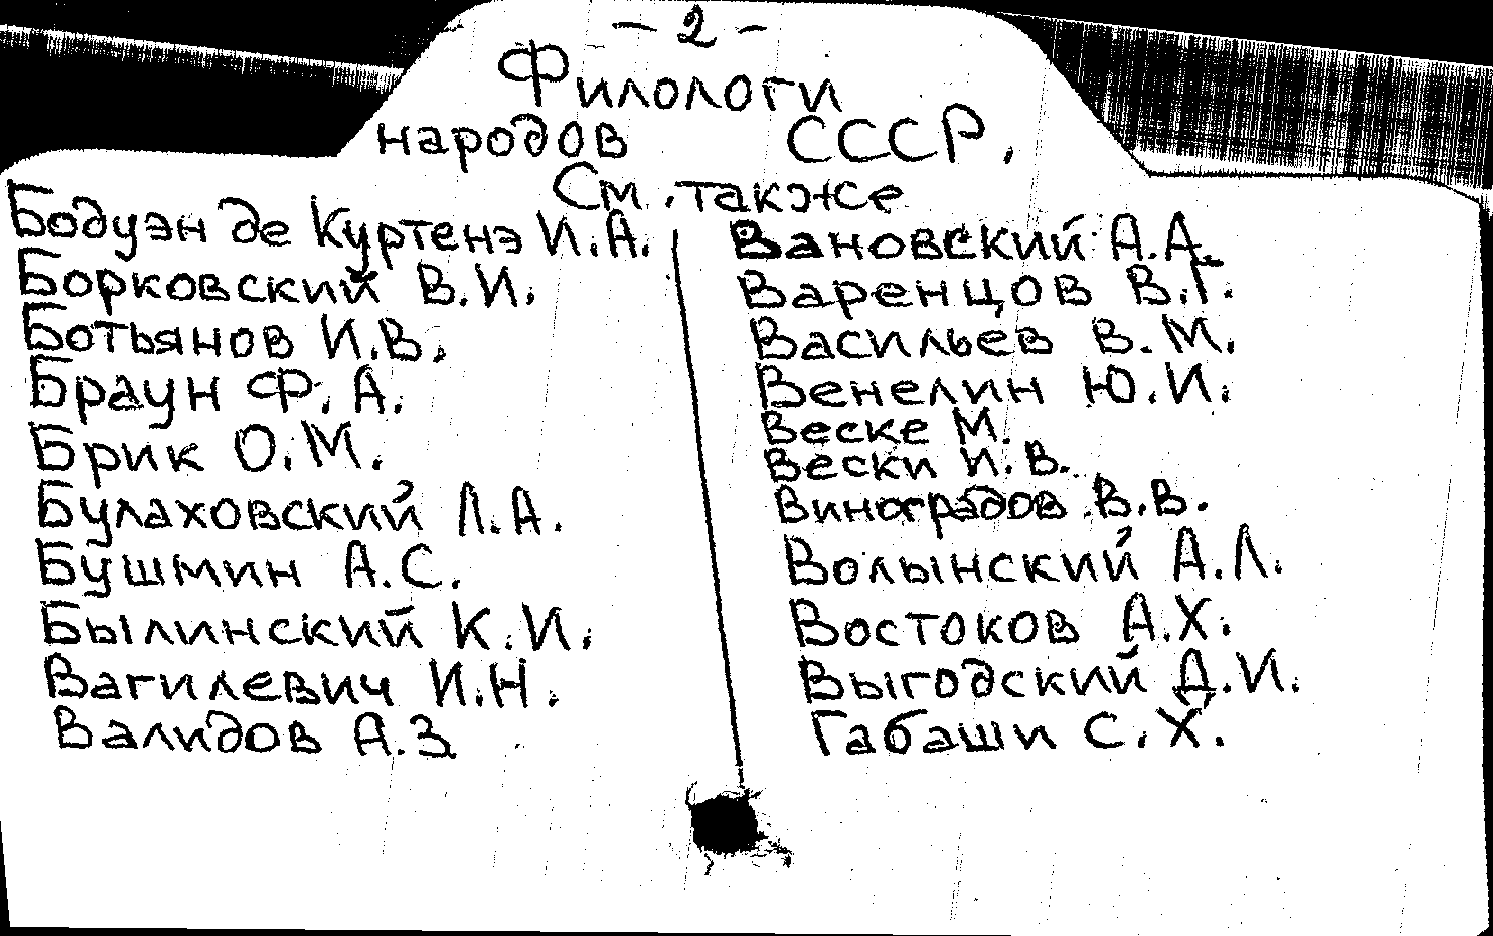 - 2 -
Филологи
народов СССР.
См. также
Бодуэн де Куртенэ И.А.
Борковский В.И.
Ботьянов И.В.
Браун Ф.А.
Брик О.М.
Булаховский Л.А.
Бушмин А.С.
Былинский К.И.
Вагилевич И.Н.
Валидов А.З
Вановский А.А.
Варенцов В.Г.
Васильев В.М.
Венелин Ю.И.
Веске М.
Вески И.В.
Виноградов В.В.
Волынский А.Л.
Востоков А.Х.
Выгодский Д.И.
Габаши С.Х.